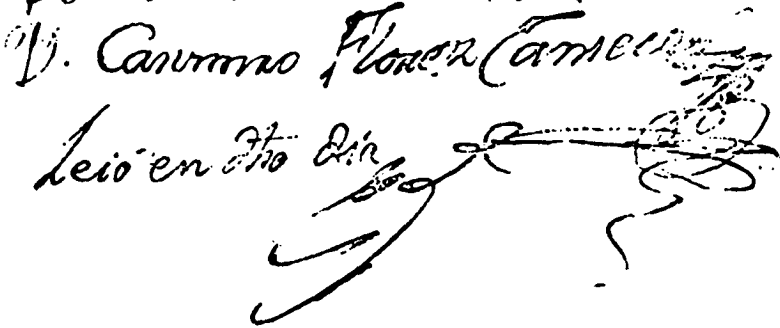 D. Casimiro Florez Canseco
Leió en dho dia